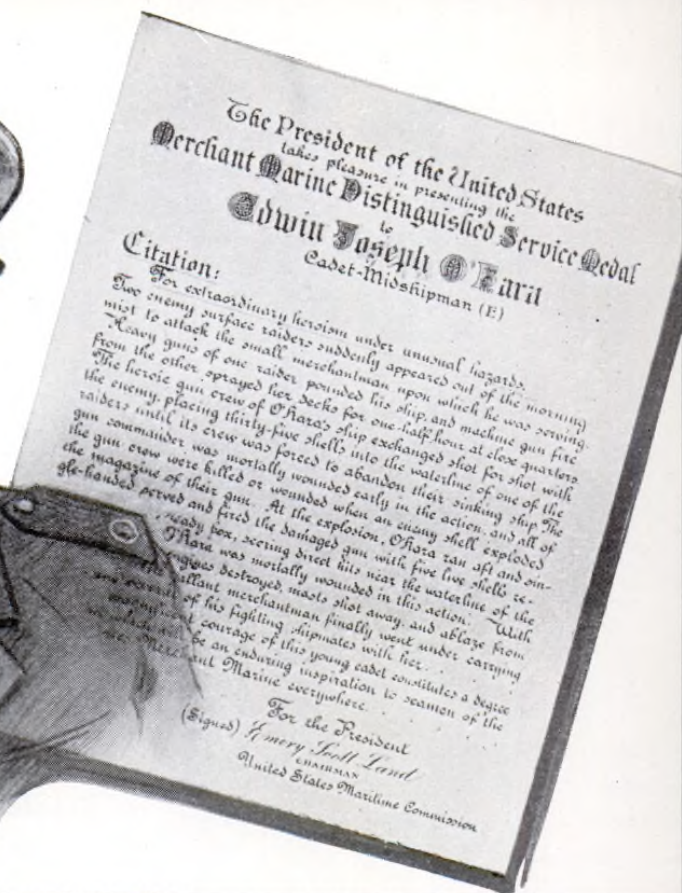 The President of the United States
takes pleasure in presenting the
Merchant Marine Distinguished Service Medal
to
Edwin Joseph O'Hara
Cadet-Midshipman (E)
Citation:
For extraordinary heroism under unusual hazards.
Two enemy surface raiders suddenly appeared out of the morning
mist to attack the small merchantman upon which he was serving.
Heavy guns of one raider pounded his ship, and machine gun fire
from the other sprayed her decks for one-half hour at close quarters.
The heroic gun crew of O'Hara's ship exchanged shot for shot with
the enemy, placing thirty-five shells into the waterline of one of the
raiders until its crew was forced to abandon their sinking ship. The
gun commander was mortally wounded early in the action, and all of
the gun crew were killed or wounded when an enemy shell exploded
the magazine of their gun. At the explosion, O'Hara ran aft and sin-
gle-handed served and fired the damaged gun with five live shells re-
ready box, scoring direct hits near the waterline of the
O'Hara was mortally wounded in this action. With
engines destroyed, masts shot away, and ablaze from
gallant merchantman finally went under carrying
of his fighting shipmates with her.
courage of this young cadet constitutes a degree
be an enduring inspiration to seamen of the
Merchant Marine everywhere.
For the President
(Signed) Emory Scott Land
CHAIRMAN
United States Maritime Commission